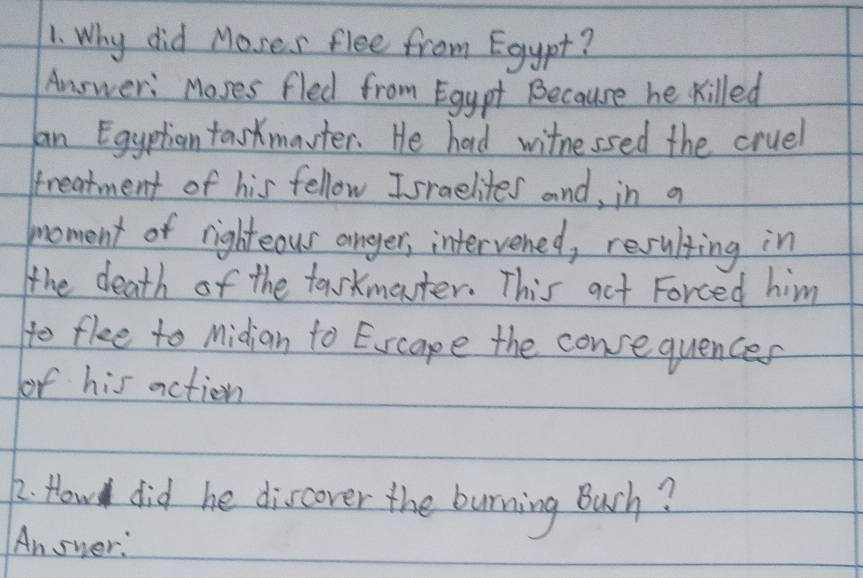 1. Why did Moses flee from Egypt?
Answer: Moses fled from Egypt Because he Killed
an Egyptian taskmaster. He had witnessed the cruel
treatment of his fellow Israelites and, in a
moment of righteous anger, intervened, resulting in
the death of the taskmaster. This act Forced him
to flee to Midian to Escape the consequences
of his action
2. How did he discover the burning Bush?
Answer: